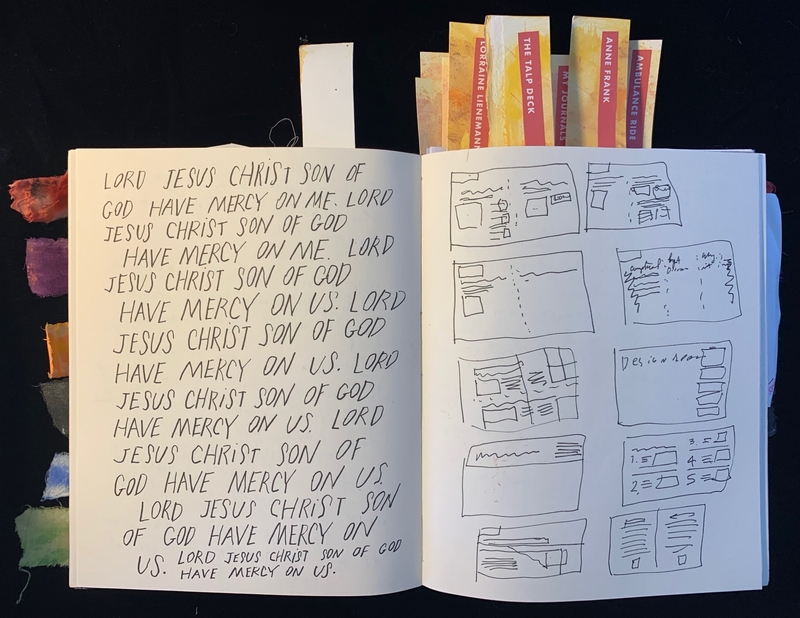 LORRAINE LIENEMANN
THE TALP DECK
MY JOURNALS
ANNE FRANK
AMBULANCE RIDE
LORD JESUS CHRIST SON OF
GOD HAVE MERCY ON ME. LORD
JESUS CHRIST SON OF GOD
HAVE MERCY ON ME. LORD
JESUS CHRIST SON OF GOD
HAVE MERCY ON US. LORD
JESUS CHRIST SON OF GOD
HAVE MERCY ON US. LORD
JESUS CHRIST SON OF GOD
HAVE MERCY ON US. LORD
JESUS CHRIST SON OF
GOD HAVE MERCY ON US.
LORD JESUS CHRIST SON
OF GOD HAVE MERCY ON
US. LORD JESUS CHRIST SON OF GOD
HAVE MERCY ON US.
Design
1.
2.
3.
4
5